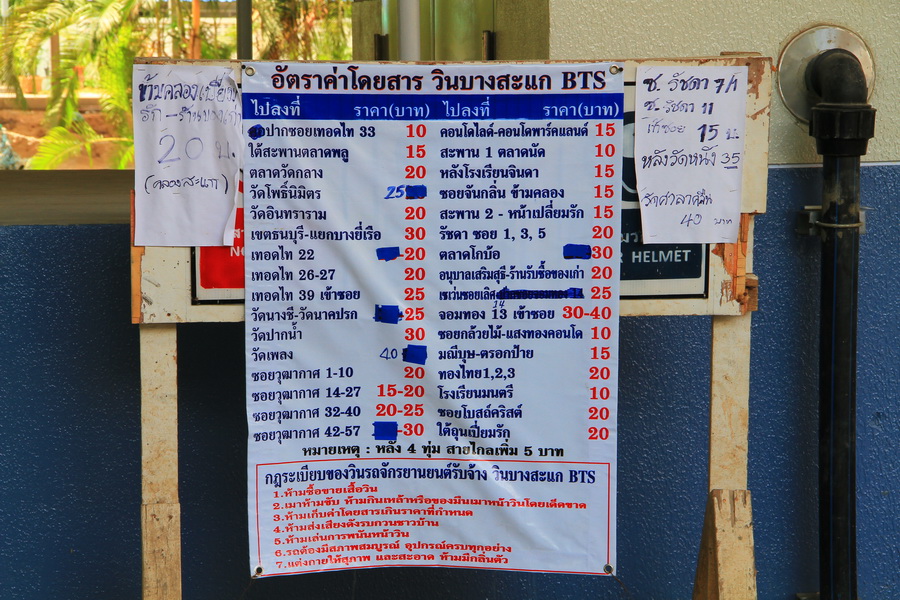 อัตราค่าโดยสาร วินบางสะแก BTS
ไปลงที่ ราคา(บาท) ไปลงที่ ราคา(บาท)
ปากซอยเทอดไท 33 10
ใต้สะพานตลาดพลู 15
ตลาดวัดกลาง 20
วัดโพธิ์นิมิตร 25
วัดอินทราราม 20
เขตธนบุรี-แยกบางยี่เรือ 30
เทอดไท 22 -20
เทอดไท 26-27 20
เทอดไท 39 เข้าซอย 25
วัดนางชี-วัดนาคปรก -25
วัดปากน้ำ 30
วัดเพลง 40
ซอยวุฒากาศ 1-10 20
ซอยวุฒากาศ 14-27 15-20
ซอยวุฒากาศ 32-40 20-25
ซอยวุฒากาศ 42-57 -30
คอนโดไลด์-คอนโดพาร์คแลนด์ 15
สะพาน 1 ตลาดนัด 10
หลังโรงเรียนจินดา 15
ซอยจันกลิ่น ข้ามคลอง 15
สะพาน 2 - หน้าเปลี่ยมรัก 15
รัชดา ซอย 1, 3, 5 20
ตลาดโกบ้อ 30
อนุบาลเสริมสุธี-ร้านรับซื้อของเก่า 20
เซเว่นซอยเลิศ 25
14
จอมทอง 13 เข้าซอย 30-40
ซอยกล้วยไม้-แสงทองคอนโด 10
มณีบุษ-ตรอกป้าย 15
ทองไทย1,2,3 20
โรงเรียนมนตรี 10
ซอยโบสถ์คริสต์ 20
ใต้ถุนเปี่ยมรัก 20
หมายเหตุ : หลัง 4 ทุ่ม สายไกลเพิ่ม 5 บาท
กฎระเบียบของวินรถจักรยานยนต์รับจ้าง วินบางสะแก BTS
1.ห้ามซื้อขายเสื้อวิน
2.เมาห้ามขับ ห้ามกินเหล้าหรือของมึนเมาหน้าวินโดยเด็ดขาด
3.ห้ามเก็บค่าโดยสารเกินราคาที่กำหนด
4.ห้ามส่งเสียงดังรบกวนชาวบ้าน
5.ห้ามเล่นการพนันหน้าวิน
6.รถต้องมีสภาพสมบูรณ์ อุปกรณ์ครบทุกอย่าง
7.แต่งกายให้สุภาพ และสะอาด ห้ามมีกลิ่นตัว
ข้ามคลอง
20 บ.
(คลองสะแก)
ซ. รัชดา 7/1
ซ. รัชดา 11
เข้าซอย 15 บ.
หลังวัดหนัง 35
40 บาท
HELMET